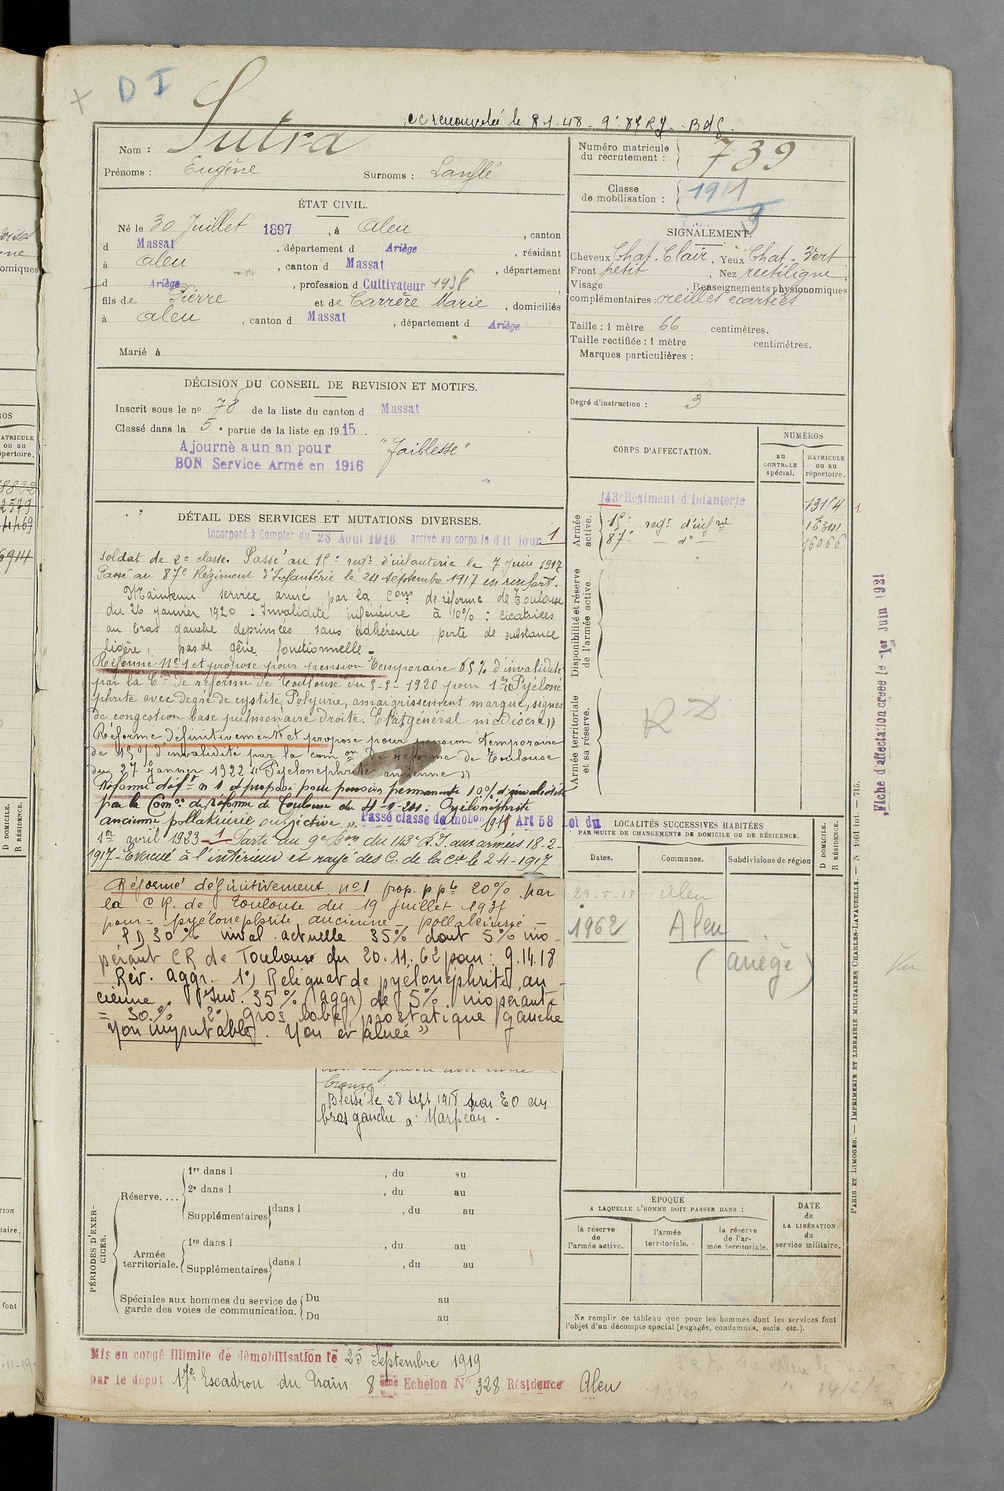 D I
CC renouvelée le 8-1-48
Nom : Sutra
Prénoms : Eugène Surnoms :
ÉTAT CIVIL.
Né le 30 Juillet 1897, à Aleu, canton
d Massat, département d Ariège, résidant
à Aleu, canton d Massat, département
d Ariège, profession d Cultivateur
fils de Pierre et de Carrère Marie, domiciliés
à Aleu, canton d Massat, département d Ariège
Marié à
DÉCISION DU CONSEIL DE REVISION ET MOTIFS.
Inscrit sous le no 78 de la liste du canton d Massat
Classé dans la 5e partie de la liste en 1915.
Ajourné a un an pour "faiblesse"
BON Service Armé en 1916
DÉTAIL DES SERVICES ET MUTATIONS DIVERSES.
Incorporé à Compter du 28 Août 1916 arrivé au corps le dit jour 1
soldat de 2e classe. Passé au 15e regt d'infanterie le 7 juin 1917
Passé au 87e Régiment d'Infanterie le 24 septembre 1917 en renfort.
Maintenu service armé par la Com de réforme de Toulouse
du 26 janvier 1920. Invalidité inférieure à 10% : cicatrices
au bras gauche déprimées sans adhérence perte de substance
légère, pas de gêne fonctionnelle -
Réformé no 1 et proposé pour pension temporaire 65% d'invalidité
par la Con de réforme de Toulouse du 5-5-1920 pour 1o Pyéloné
phrite avec degré de cystite, Polyurie, amaigrissement marqué, signes
de congestion base pulmonaire droite. Etat général médiocre"
Réformé définitivement et proposé pour pension temporaire
de 15% d'invalidité par la com on de réforme de Toulouse
du 27 janvier 1922 "Pyélonéphrite ancienne"
Réformé déft no 1 et proposé pour pension permanente 10% d'invalidité
par la Comon de réforme de Toulouse du 11-1-24. Pyélonéphrite
ancienne pollakiurie subjective". Passé classe de mobon 1911 Art 58 Loi du
1er avril 1923 - 1 Parti au 9e Bon du 143e R.I. aux armées 18-2-
1917 - Evacué à l'intérieur et rayé des C. de la Cie le 2-4-1917
Réformé définitivement no1 prop. ppte 20% par
la CR. de Toulouse du 19 juillet 1931
pour = pyélonéphrite ancienne - pollakiurie -
PD 30% inval. actuelle 35% dont 5% ino
pérant CR de Toulouse du 20.11.62 pour : 9.14.18
Rév. aggr. 1o) Reliquat de pyélonéphrite an-
cienne. 35% (aggr) de 5% inopérante
= 30% 2o) gros lobe prostatique gauche
Non imputable. Non et aucune"
bronze.
Blessé le 28 sept 1918 par EO au
bras gauche à
PÉRIODES D'EXERCICES.
Réserve....
1re dans l , du au
2e dans l , du au
Supplémentaires dans l , du au
Armée territoriale.
1re dans l , du au
Supplémentaires dans l , du au
Spéciales aux hommes du service de garde des voies de communication.
Du au
Du au
Mis en congé illimité de démobilisation le 25 Septembre 1919
par le dépôt 17e Escadron du Train 8ème Echelon No 328 Résidence Aleu
Numéro matricule du recrutement : 739
Classe de mobilisation : 1911
SIGNALEMENT.
Cheveux Chat. Clair, Yeux Chat. Vert
Front petit, Nez rectiligne
Visage , Renseignements physionomiques
complémentaires : oreilles écartées
Taille : 1 mètre 66 centimètres.
Taille rectifiée : 1 mètre centimètres.
Marques particulières :
Degré d'instruction : 3
CORPS D'AFFECTATION.
NUMÉROS
AU CONTROLE spécial.
MATRICULE OU AU répertoire.
Armée active.
143e Régiment d'Infanterie 13164
15e regt d'infrie
87e - do - 16066
Disponibilité et réserve de l'armée active.
Armée territoriale et sa réserve.
LOCALITÉS SUCCESSIVES HABITÉES
PAR SUITE DE CHANGEMENTS DE DOMICILE OU DE RÉSIDENCE.
Dates. Communes. Subdivisions de région
D DOMICILE.
R RÉSIDENCE.
Aleu
1962 Aleu
(Ariège)
Vu
ÉPOQUE
A LAQUELLE L'HOMME DOIT PASSER DANS :
la réserve de l'armée active.
l'armée territoriale.
la réserve de l'armée territoriale.
DATE de LA LIBÉRATION du service militaire.
Ne remplir ce tableau que pour les hommes dont les services font
l'objet d'un décompte spécial (engagés, condamnés, omis, etc.).
Fiche d'affectation créée le 1er Juin 1921
PARIS ET LIMOGES. — IMPRIMERIE ET LIBRAIRIE MILITAIRES CHARLES-LAVAUZELLE. — N 1001 int. — 715.